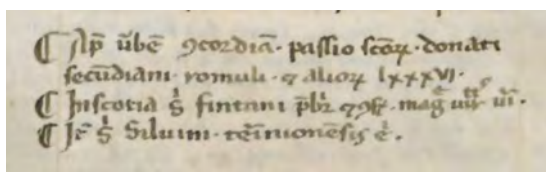 ¶ Ap̄ ůbē ꝯcordiā· passio sc̄oꝝ· donati
secūdiani· romuli· ⁊ alioꝝ lxxxvi·
¶ Inscotia s̄ fintani p̄br̄ ⁊ ꝯf̄· maḡ ūtꝭ
¶ It̄ s̄ Siluini· tēruonēsis ē·